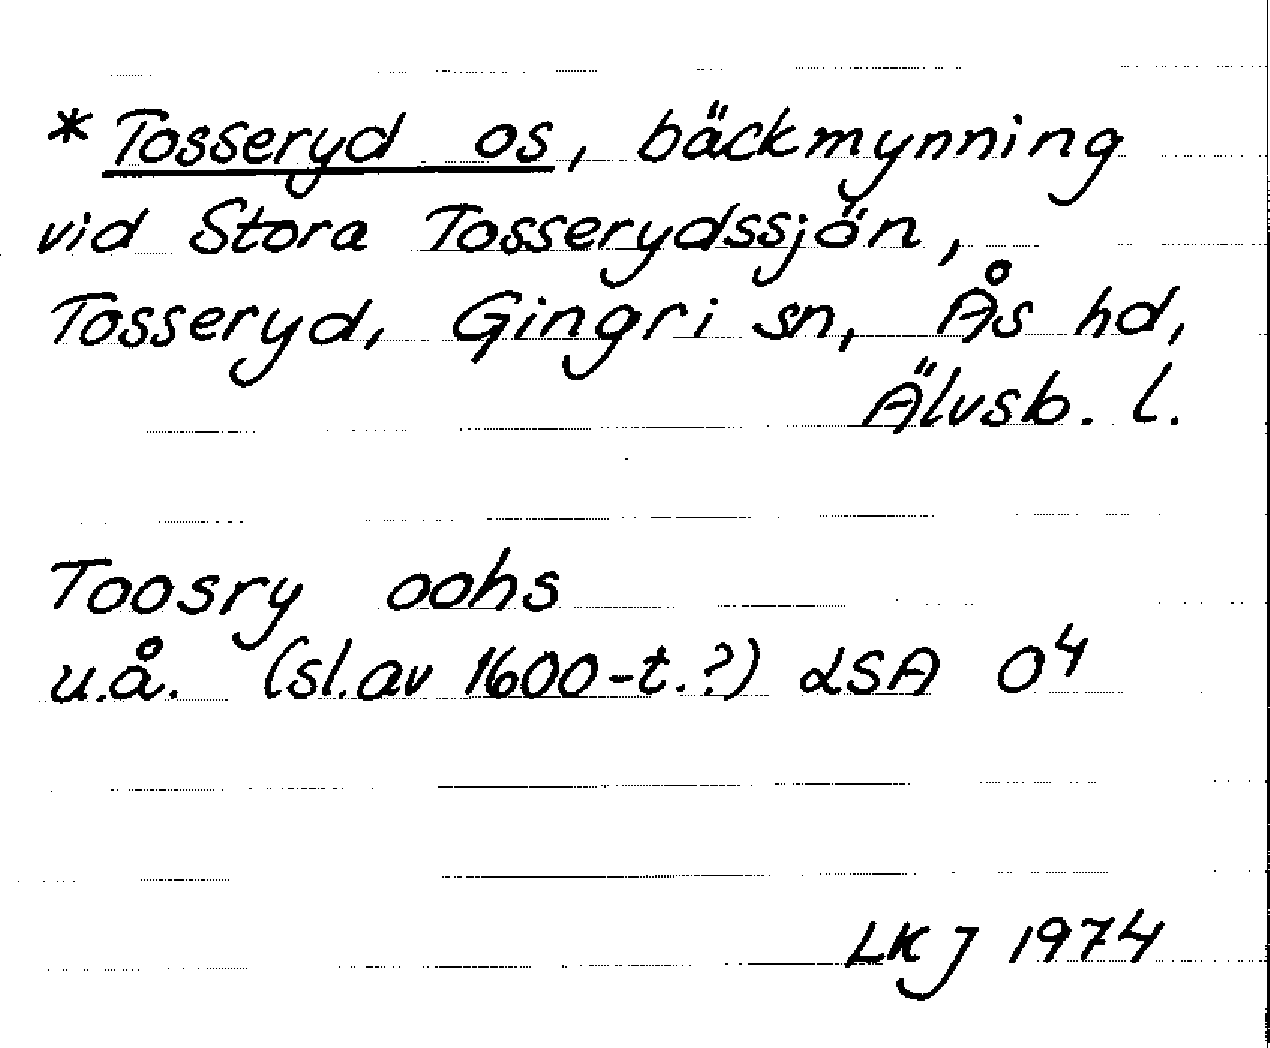 * Tosseryd os, bäckmynning
vid Stora Tosserydssjön,
Tosseryd, Gingri sn, Ås hd,
Älvsb. l.
Toosry oohs
u.å. (sl.av 1600-t.?) LSA O⁴
LKJ 1974